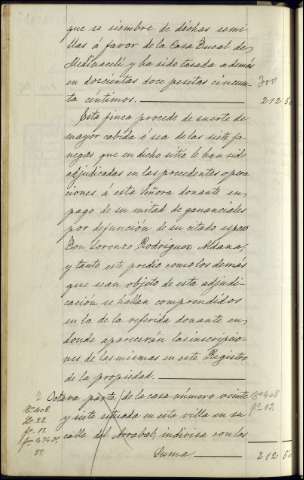 que se siembre de dichas semi-
llas á favor de la Casa Ducal de
Medinaceli y ha sido tasada además
en doscientas doce pesetas cincuen-
ta céntimos. 212 50
Esta finca procede de suerte de
mayor cabida ó sea de las siete fa-
negas que en dicho sitio le han sido
adjudicadas en las precedentes opera-
ciones á esta Señora donante en
pago de su mitad de gananciales
por defunción de su citado esposo
Don Lorenzo Rodríguez Aldana,
y tanto este predio como los demás
que sean objeto de esta adjudi-
cación se hallan comprendidos
en lo de la referida donante en
donde aparecerán las inscripcio-
nes de las mismas en este Registro
de la propiedad.
Octava parte de la casa número veinte
y siete situada en esta villa en su
calle del Arrabal, indivisa con los
Suma 212 50